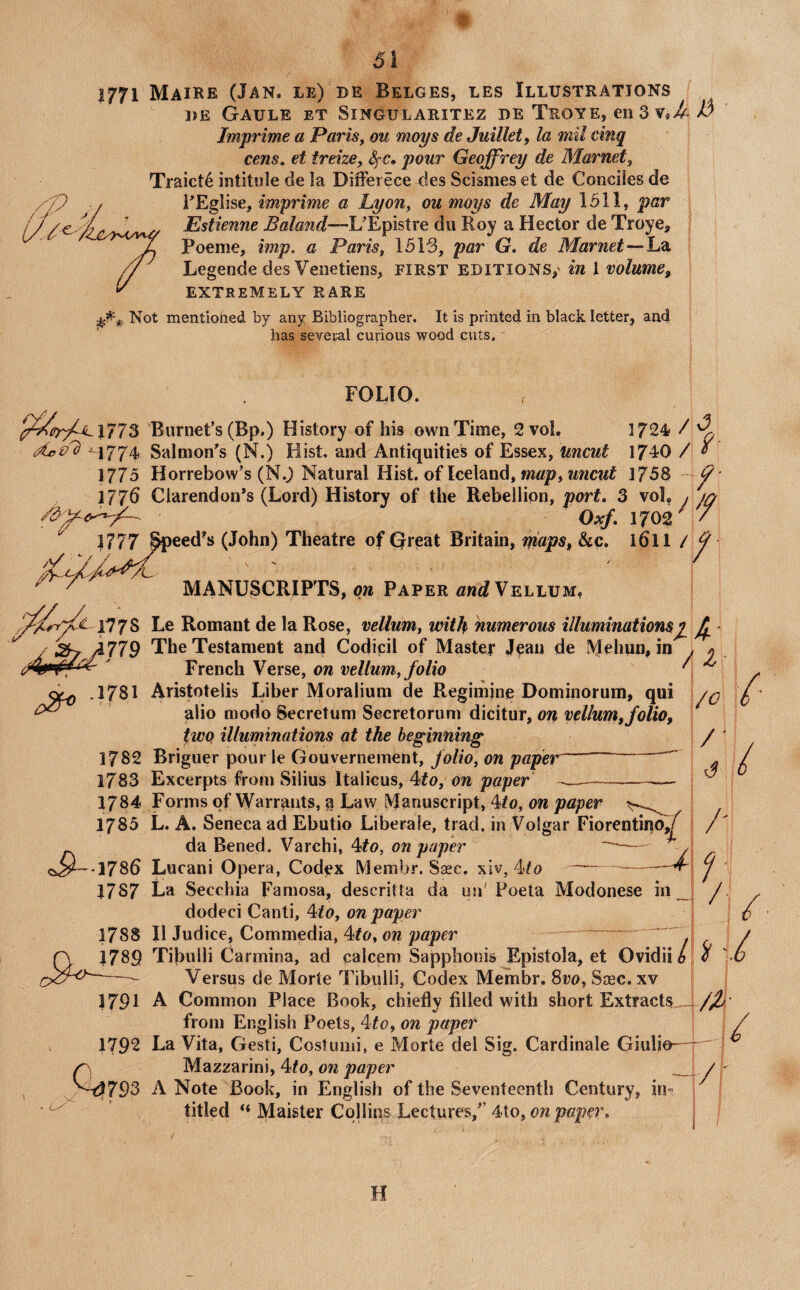 51
1771 MAIRE (JAN. LE) DE BELGES, LES ILLUSTRATIONS
DE GAULE ET SINGULARITEZ DE TROYE, en 3 v.
Imprime a Paris, ou moys de Juillet, la mil cinq
cens. et treize, &c. pour Geoffrey de Marnet,
Traicté intitule de la Differēce des Scismes et de Conciles de
l'Eglise, imprime a Lyon, ou moys de May 1511, par
Estienne Baland—L'Epistre du Roy a Hector de Troye,
Poeme, imp. a Paris, 1513, par G. de Marnet—La
Legende des Venetiens, FIRST EDITIONS, in 1 volume,
EXTREMELY RARE
*** Not mentioned by any Bibliographer. It is printed in black letter, and
has several curious wood cuts.
FOLIO.
1773 Burnet's (Bp.) History of his own Time, 2 vol. 1724
1774 Salmon's (N.) Hist. and Antiquities of Essex, uncut 1740
1775 Horrebow's (N.) Natural Hist. of Iceland, map, uncut 1758
1776 Clarendon's (Lord) History of the Rebellion, port. 3 vol.
Oxf. 1702
1777 Speed's (John) Theatre of Great Britain, maps, &c. 1611
MANUSCRIPTS, on PAPER and VELLUM.
1778 Le Romant de la Rose, vellum, with numerous illuminations
1779 The Testament and Codicil of Master Jean de Mehun, in
French Verse, on vellum, folio
1781 Aristotelis Liber Moralium de Regimine Dominorum, qui
alio modo Secretum Secretorum dicitur, on vellum, folio,
two illuminations at the beginning
1782 Briguer pour le Gouvernement, folio, on paper
1783 Excerpts from Silius Italicus, 4to, on paper
1784 Forms of Warrants, a Law Manuscript, 4to, on paper
1785 L. A. Seneca ad Ebutio Liberale, trad. in Volgar Fiorentino,
da Bened. Varchi, 4to, on paper
1786 Lucani Opera, Codex Membr. Sæc. xiv, 4to
1787 La Secchia Famosa, descritta da un' Poeta Modonese in
dodeci Canti, 4to, on paper
1788 Il Judice, Commedia, 4to, on paper
1789 Tibulli Carmina, ad calcem Sapphonis Epistola, et Ovidii
Versus de Morte Tibulli, Codex Membr. 8vo, Sæc. xv
1791 A Common Place Book, chiefly filled with short Extracts
from English Poets, 4to, on paper
1792 La Vita, Gesti, Costumi, e Morte del Sig. Cardinale Giulio
Mazzarini, 4to, on paper
1793 A Note Book, in English of the Seventeenth Century, in-
titled “ Maister Collins Lectures,” 4to, on paper.
H